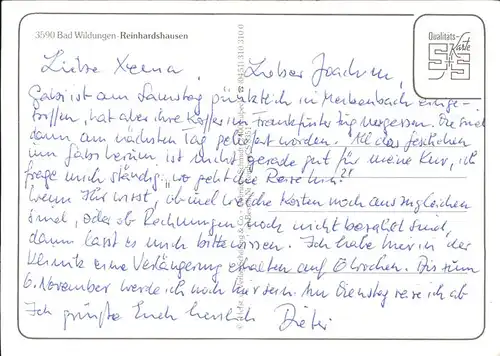 3590 Bad Wildungen-Reinhardshausen
Qualitäts-Karte
Liebe Xenia, Lieber Joachim,
Gabi ist am Samstag pünktlich in einge-
troffen, hat aber ihre Koffer im Frankfurter Zug vergessen. Die sind
dann am nächsten Tag geliefert worden. All das
um Gabi herum, ist nicht gerade gut für meine Kur, ich
frage mich ständig „wo geht die Reise hin?!
Wenn Ihr wisst, ob und welche Kosten noch auszugleichen
sind, oder ob Rechnungen noch nicht bezahlt sind,
dann lasst es mich bitte wissen. Ich habe hier in der
Klinik eine Verlängerung erhalten auf 6 Wochen. Bis zum
6. November werde ich noch hier sein. Am Dienstag reise ich ab
Ich grüße Euch herzlich Dieter